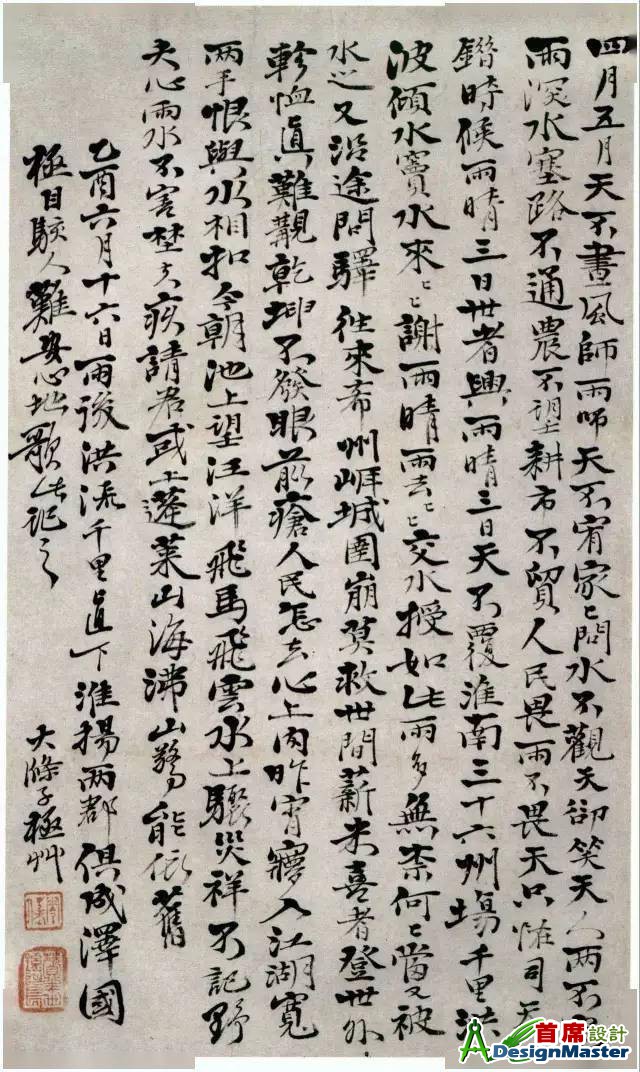 四月五月天不晝風師雨師天不宥家〻問水不觀天卻笑天人兩不
雨深水塞路不通農不望耕市不貿人民畏雨不畏天只恠司天
錯時候雨晴三日世者興雨晴三日天不覆淮南三十六州場千里洪
波傾水竇水來〻〻謝雨晴雨去〻〻交水授如此雨多無柰何〻當又被
水之又沿途問驛往來希州嶇城圍崩莫救世間薪米喜者登世外
軫恤真難覯乾坤不發眼前瘡人民怎去心上肉昨宵寢入江湖寬
两手恨與水相扣今朝池上望汪洋飛馬飛雲水上驟災祥不記野
夫心雨水不害埜夫疾請君或上蓬萊山海沸山驚能依舊
乙酉六月十六日雨後洪流千里直下淮揚兩郡俱成澤國
極目駭人難安心地歌此記之
大滌子極艸
首席設計
DesignMaster